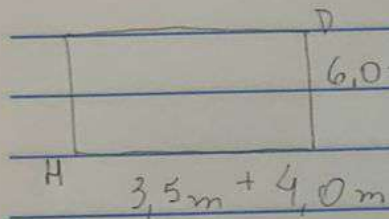 D
6,0
H
3,5m + 4,0m